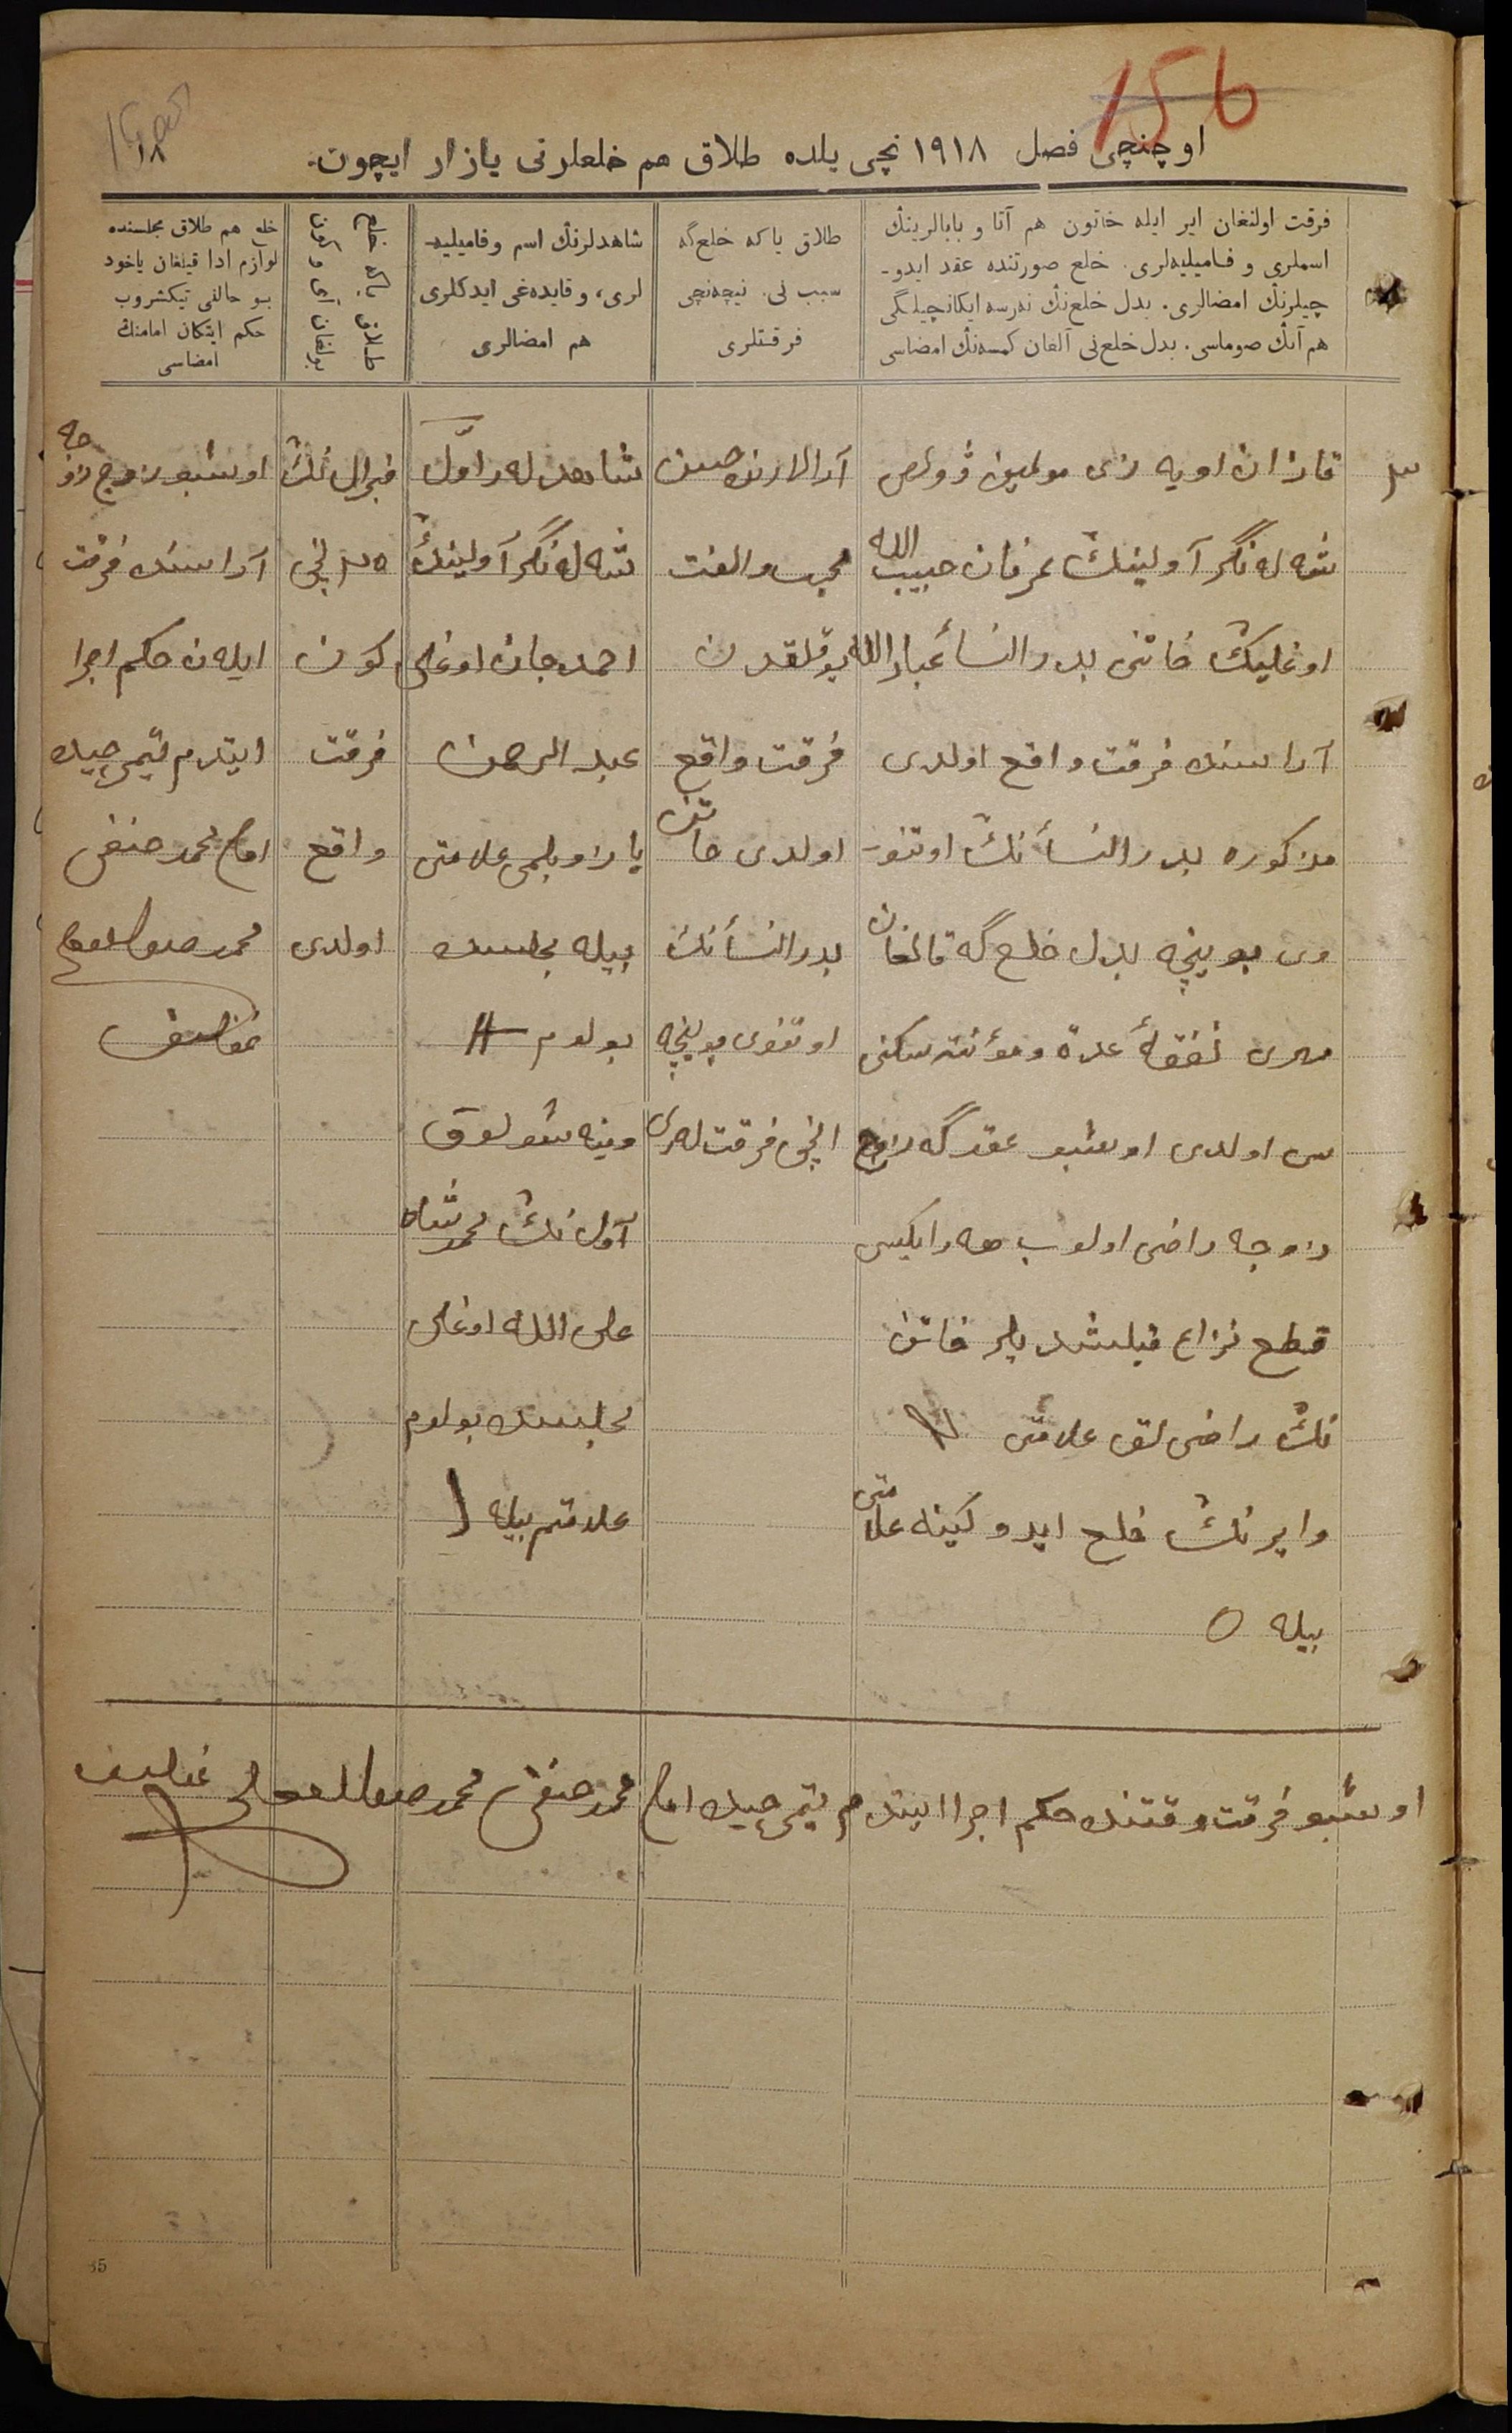 156
١٨
اوچنچی فصل ١٩١٨ نچی یلده طلاق هم خلعلرنی یازار ایچون.
فرقت اولنغان ایر ایله خاتون هم آتا و بابالرینڭ
اسملری و فامیلیه‌لری. خلع صورتنده عقد ایدو-
چیلرنڭ امضالری. بدل خلع‌نڭ نه‌رسه ایکانچیلگی
هم آنڭ صوماسی. بدل خلع‌نی آلغان کمسه‌نڭ امضاسی
طلاق یا که خلع‌گه
سبب نی. نیچه‌نچی
فرقتلری
شاهدلرنڭ اسم وفامیلیه-
لری، وقایده‌غی ایدکلری
هم امضالری
طلاق یا که خلع
بولغان آی و کون
خلع هم طلاق مجلسنده
لوازم ادا قیلغان یاخود
بو حالنی تیکشروب
حکم ایتکان امامنڭ
امضاسی
٣
قازان اویه زی مولمین ۋولص
شه له نگر آولینڭ عرفان حبیب الله
اوغلینڭ خاتنی بدر النسأ عباد الله
آراسنده فرقت واقع اولدی
مذکوره بدر النسأنڭ اوتنو-
وی بوینچه بدل خلع گه قالغان
مهری نفقۀ عدة ومؤنة سکنی
سی اولدی اوشبو عقدگه زوج
زوجه راضی اولوب هه رایکیسی
قطع نزاع قیلشدیلر خاتن
نڭ راضی لق علامتی
وایرنڭ خلع ایدوکینه علامتی
بیله O
آرالارنده حسن
محبت والفت
یوقلقدن
فرقت واقع
اولدی خاتن
بدر النسأنڭ
اوتنوی بوینچه
انچی فرقت لری
شاهدله ر اوّل
شه له نگر آولینڭ
احمدجان اوغلی
عبد الرحمن
یازو بلمی علامتی
بیله مجلسده
بولدم H
وینه شولوق
آول نڭ محمدشاه
علی الله اوغلی
مجلسده بولدم
علامتم بیله
فبرال نڭ
٢٥ نچی
کون
فرقت
واقع
اولدی
اوشبو زوج زوجه
آراسنده فرقت
ایله ن حکم اجرا
ایتدم یتمی جیده
امام محمد حنفی
اوشبو فرقت وقتنده حکم اجرا ایتدم یتمی جیده امام محمد حنفی
35